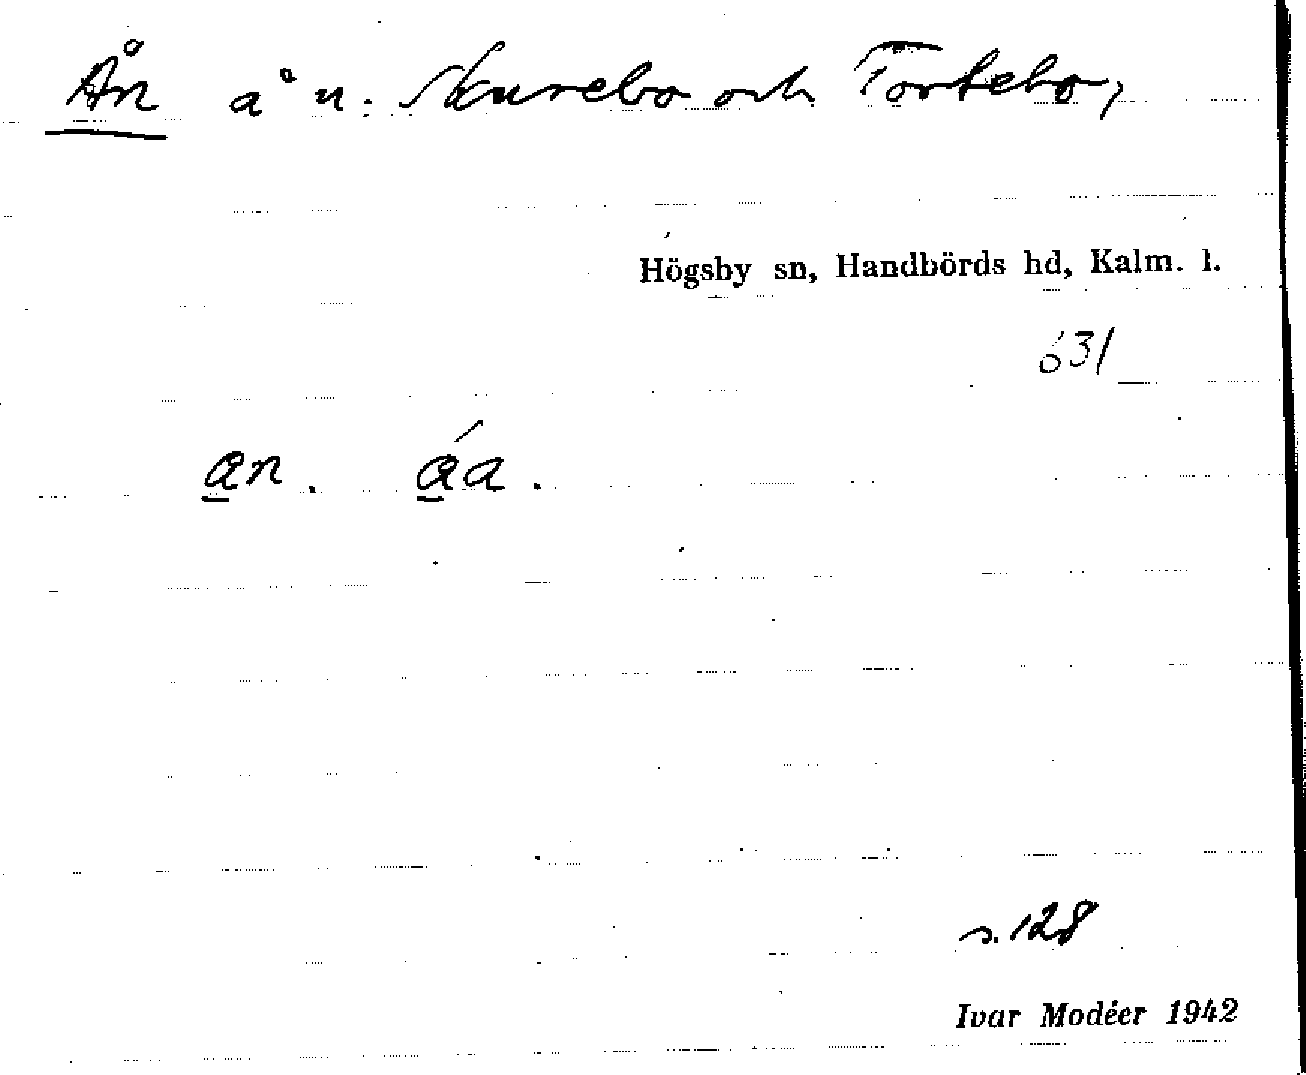 Ån å n. Skurebo och Fortebo,
Högsby sn, Handbörds hd, Kalm. l.
631
an. áa.
s. 128
Ivar Modéer 1942